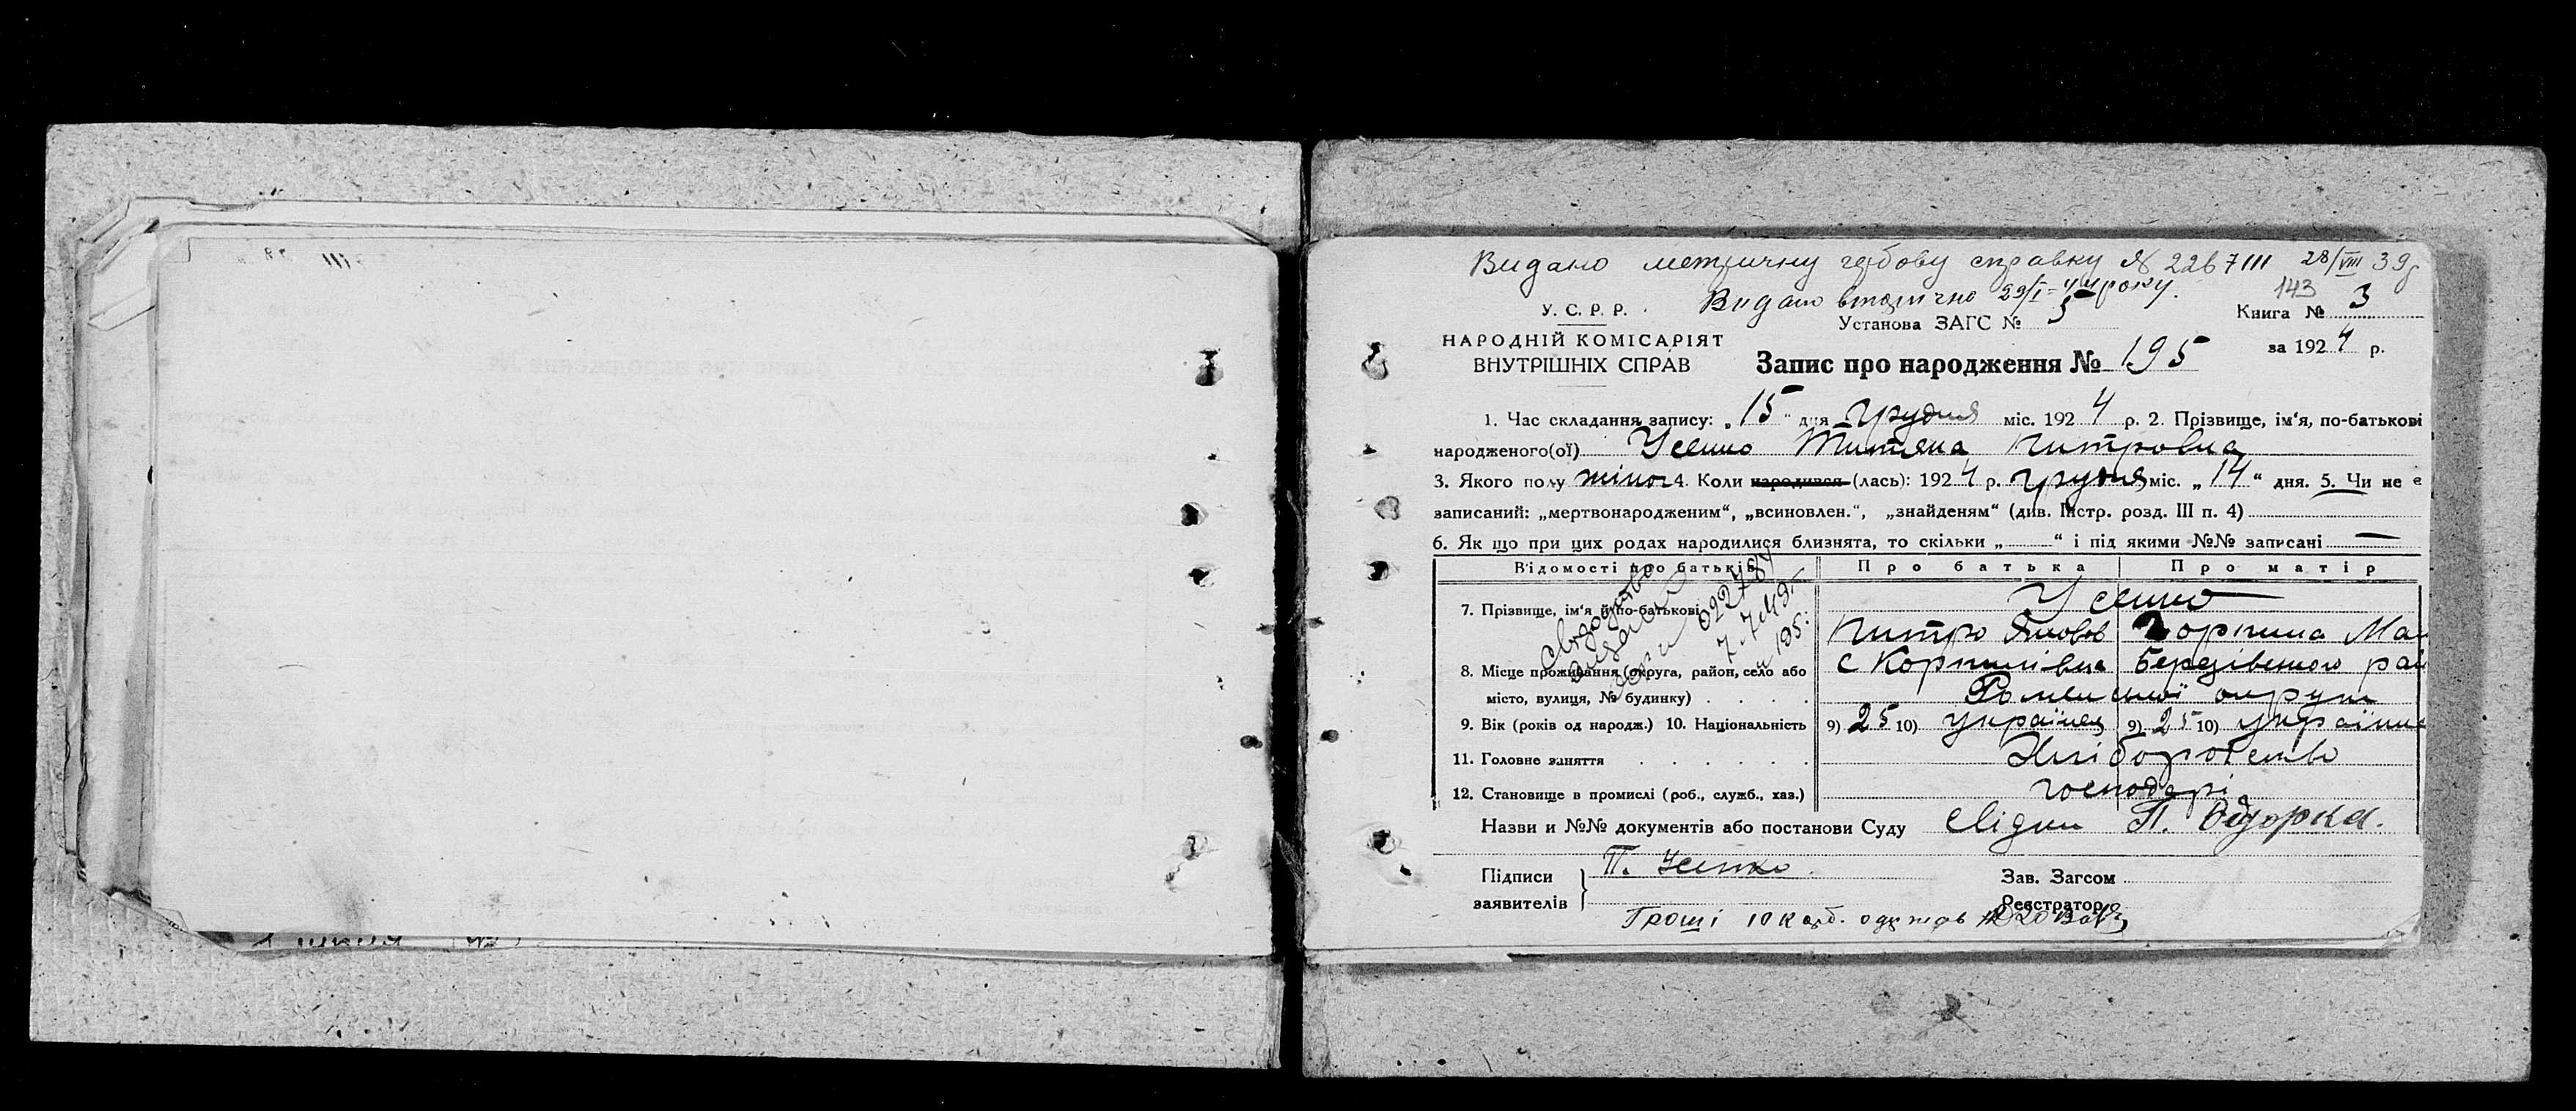 Видано метричну гербову справку № 226711 28/VIII 39р
Видано вторично 29/I-44 року.
143
У. С. Р. Р.
Установа ЗАГС № 5
Книга № 3
НАРОДНІЙ КОМІСАРІЯТ
ВНУТРІШНІХ СПРАВ
Запис про народження № 195
за 1924 р.
1. Час складання запису: „15“ дня Грудня міс. 1924 р. 2. Прізвище, ім‘я, по-батькові
народженого(ої) Усенко Титяна Питровна
3. Якого полу жіноч 4. Коли народився (лась): 1924 р. грудня міс. „14“ дня. 5. Чи не є
записаний: „мертвонародженим“, „всиновлен.“, „знайденям“ (див. Інстр. розд. III п. 4)
6. Як що при цих родах народилися близнята, то скільки „—“ і під якими №№ записані —
Відомості про батьків Про батька Про матір
7. Прізвище, ім‘я й по-батькові Усенко
Питро Яковов Горпина Ма
8. Місце проживання (округа, район, село або с Корнилівка Березівського рай
місто, вулиця, № будинку) Роменської округи
9. Вік (років од народж.) 10. Національність 9) 25 10) українец 9) 25 10) українка
11. Головне заняття Хліборобство
12. Становище в промислі (роб., служб., хаз.) господарі
Свідоцтво
022784
195
Назви и №№ документів або постанови Суду Свідки П. Одорка.
Підписи
заявителів
П. Усенко
Зав. Загсом
Реєстратор
Гроші 10 карб. одержав